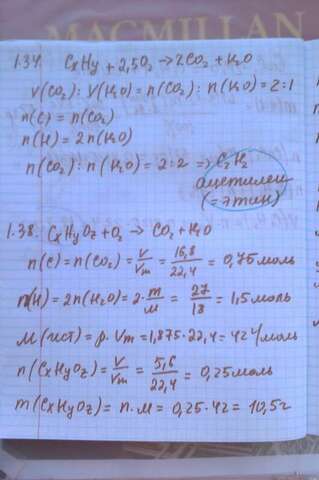 MACMILLAN
1.34. CxHy + 2,5O₂ → 2CO₂ + H₂O
V(CO₂) : V(H₂O) = n(CO₂) : n(H₂O) = 2:1
n(C) = n(CO₂)
n(H) = 2n(H₂O)
n(CO₂) : n(H₂O) = 2:2 => C₂H₂
ацетилен
(= этин)
1.38. CxHyOz + O₂ → CO₂ + H₂O
n(C) = n(CO₂) = V/Vm = 16,8/22,4 = 0,75 моль
n(H) = 2n(H₂O) = 2 · m/M = 27/18 = 1,5 моль
M(ист) = ρ · Vm = 1,875 · 22,4 = 42 г/моль
n(CxHyOz) = V/Vm = 5,6/22,4 = 0,25 моль
m(CxHyOz) = n · M = 0,25 · 42 = 10,5 г